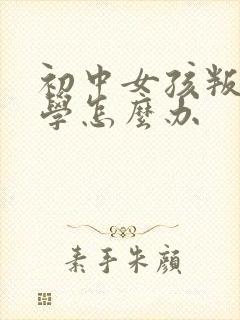 初中女孩叛
學怎麼办
素手朱顔